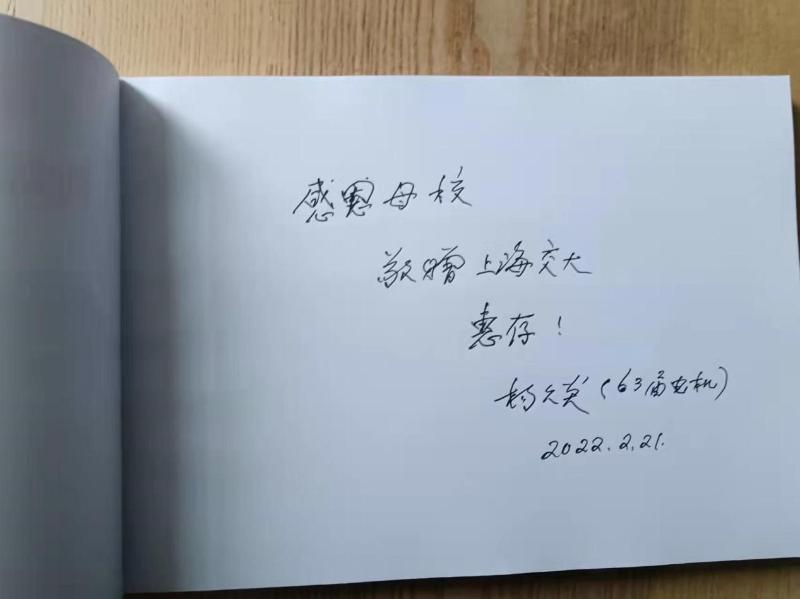 感恩母校
敬赠上海交大
惠存！
杨 (63届电机)
2022.2.21.